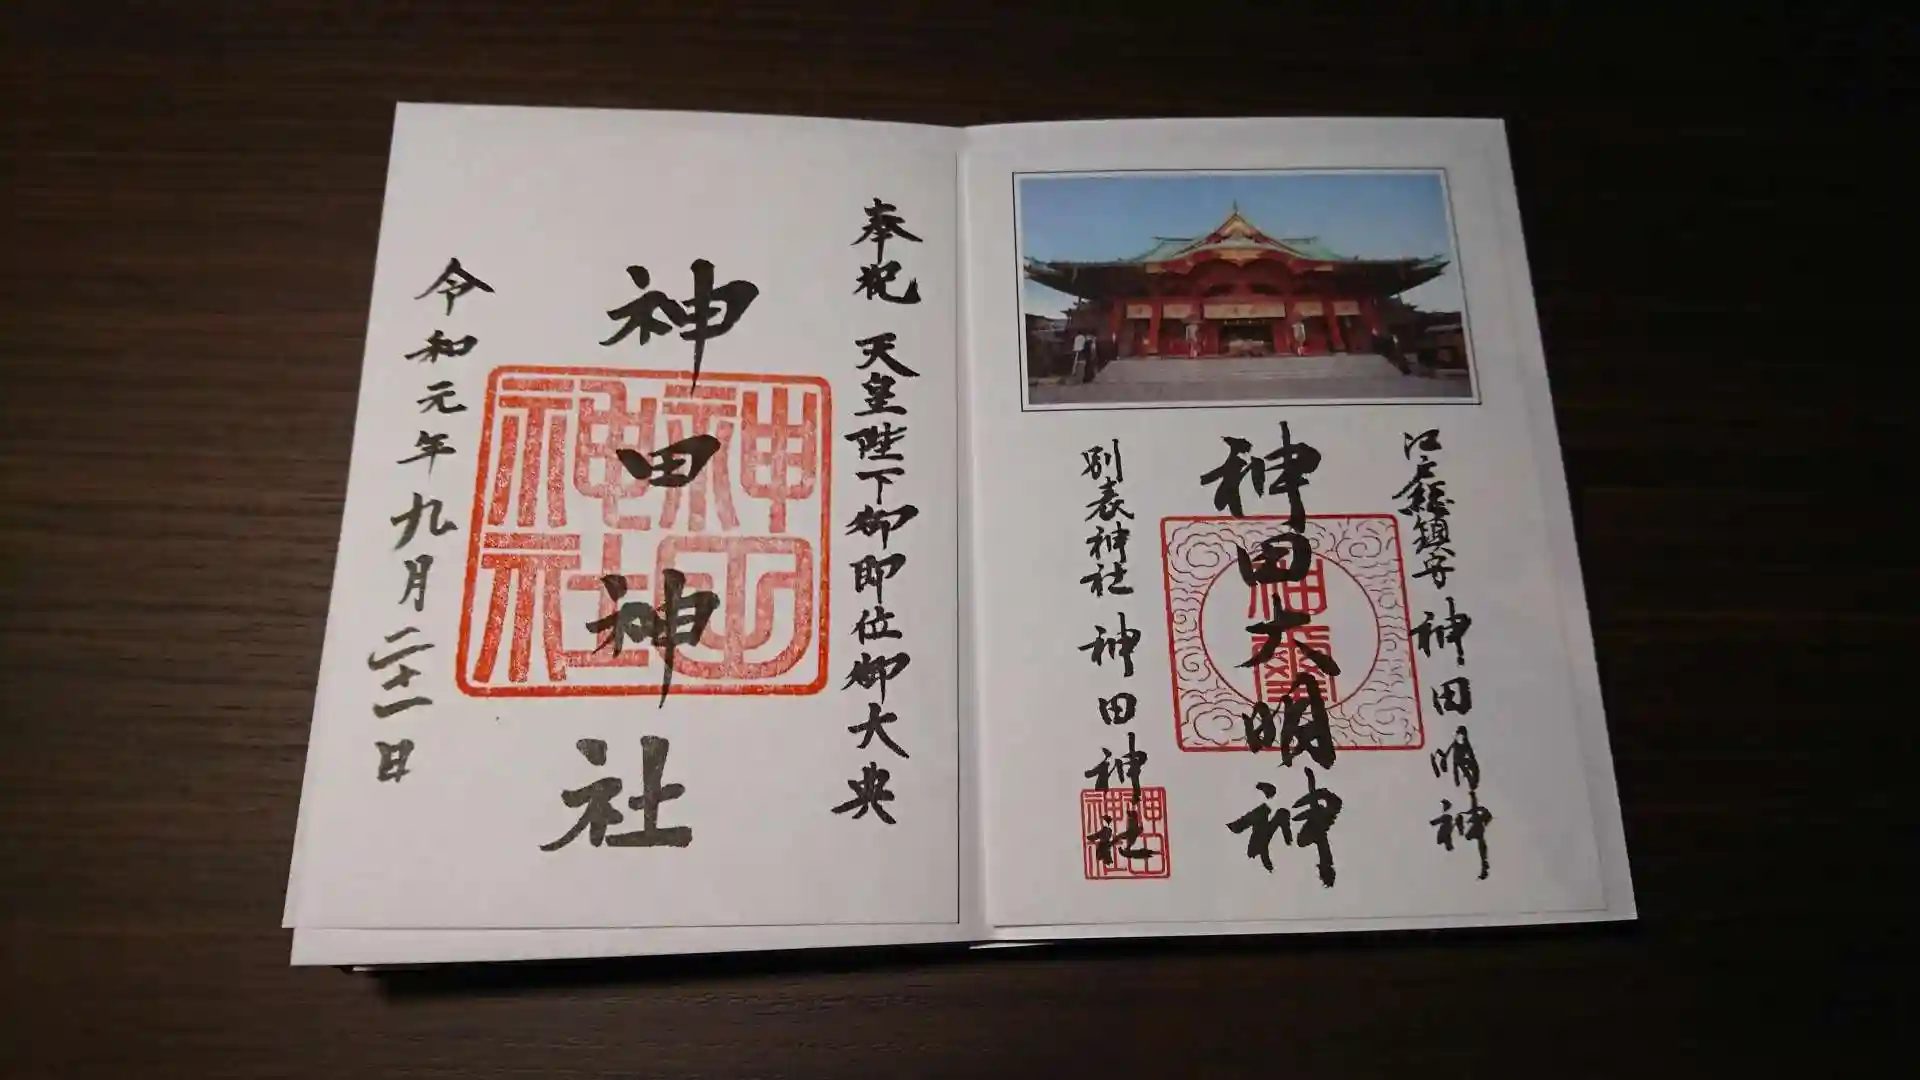 江戸総鎮守 神田明神
神田大明神
別表神社 神田神社
神田神社
奉祝 天皇陛下御即位御大典
神田神社
神田神社
令和元年九月二十一日